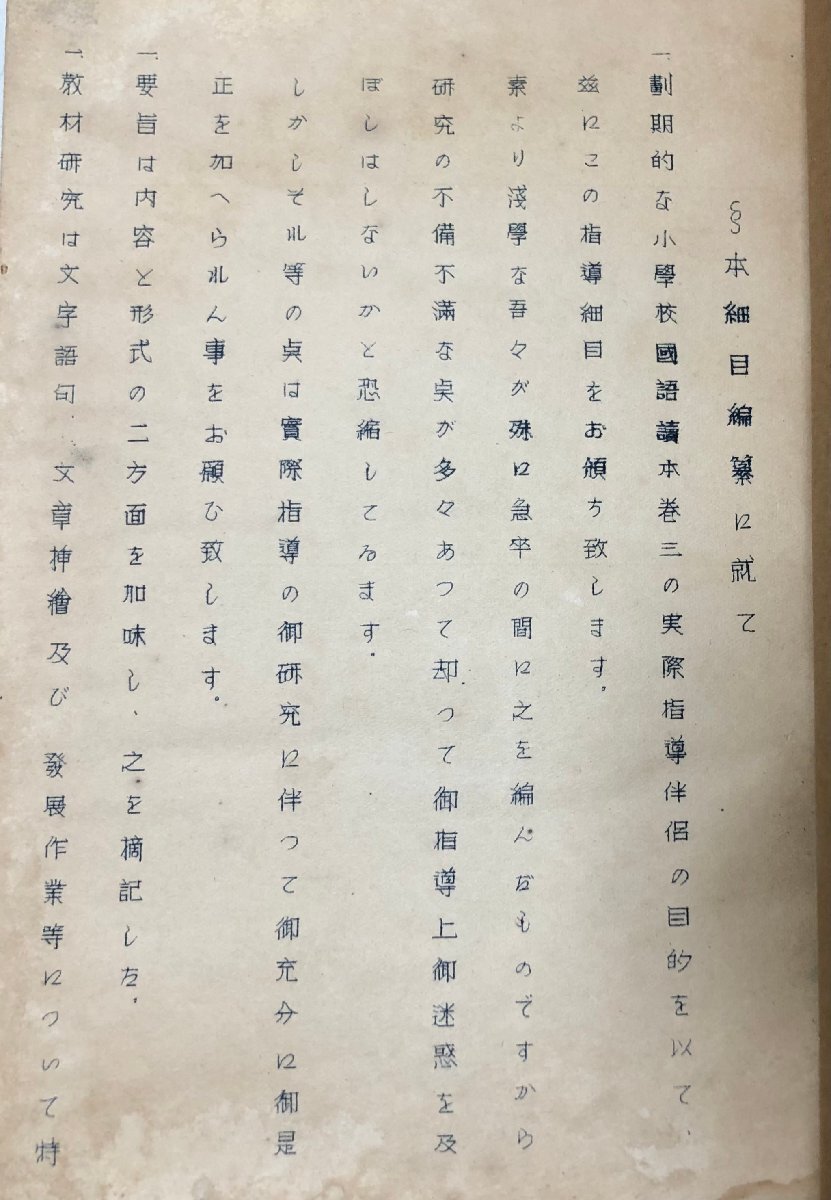 §本細目編纂に就て
一、劃期的な小學校國語讀本巻三の実際指導伴侶の目的を以て、
茲にこの指導細目をお頒ち致します。
素より淺學な吾々が殊に急卒の間に之を編んだものですから
研究の不備不滿な点が多々あつて却つて御指導上御迷惑を及
ぼしはしないかと恐縮してゐます。
しかしそれ等の点は實際指導の御研究に伴つて御充分に御是
正を加へられん事をお願ひ致します。
一、要旨は内容と形式の二方面を加味し、之を摘記した。
一、教材研究は文字語句、文章挿繪及び發展作業等について特